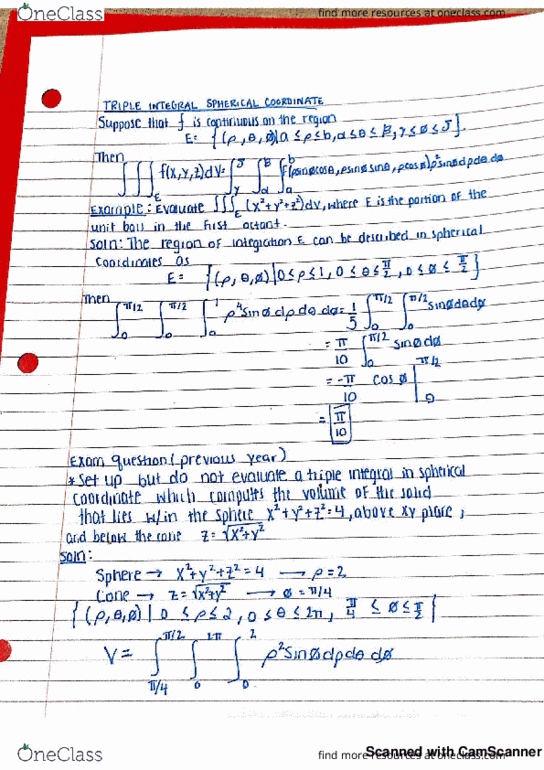 OneClass
find more resources at oneclass.com
TRIPLE INTEGRAL SPHERICAL COORDINATE
Suppose that f is continuous on the region
E= {(ρ, θ, Ø)| a ≤ ρ ≤ b, α ≤ θ ≤ β, γ ≤ Ø ≤ J}.
Then
∭_E f(x,y,z)dV = ∫_γ^J ∫_α^β ∫_a^b f(ρsinØcosθ, ρsinØsinθ, ρcosØ)ρ²sinØdρdθdØ
Example: Evaluate ∭_E (x²+y²+z²)dV, where E is the portion of the
unit ball in the first octant.
Soln: The region of integration E can be described in spherical
coordinates as
E = {(ρ, θ, Ø) | 0 ≤ ρ ≤ 1, 0 ≤ θ ≤ π/2, 0 ≤ Ø ≤ π/2}
Then
∫_0^π/2 ∫_0^π/2 ∫_0^1 ρ⁴sinØ dρ dθ dØ = 1/5 ∫_0^π/2 ∫_0^π/2 sinØdθdØ
= π/10 ∫_0^π/2 sinØ dØ
= -π/10 cosØ |_0^π/2
= π/10
Exam question (previous year)
* Set up but do not evaluate a triple integral in spherical
coordinate which computes the volume of the solid
that lies w/in the sphere x²+y²+z²=4, above xy plane,
and below the cone z=√x²+y²
Soln:
Sphere → x²+y²+z²=4 → ρ=2
Cone → z=√x²+y² → Ø=π/4
{(ρ,θ,Ø) | 0 ≤ ρ ≤ 2, 0 ≤ θ ≤ 2π, π/4 ≤ Ø ≤ π/2}
V= ∫_π/4^π/2 ∫_0^2π ∫_0^2 ρ²sinØdρdθdØ
OneClass
find more resources at oneclass.com
Scanned with CamScanner